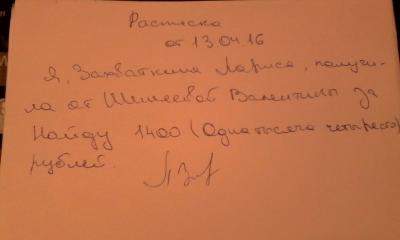 Расписка
от 13 04 16
Я, Захваткина Лариса, получи-
ла от Шишеевой Валентины за
Найду 1400 (Одна тысяча четыреста)
рублей.